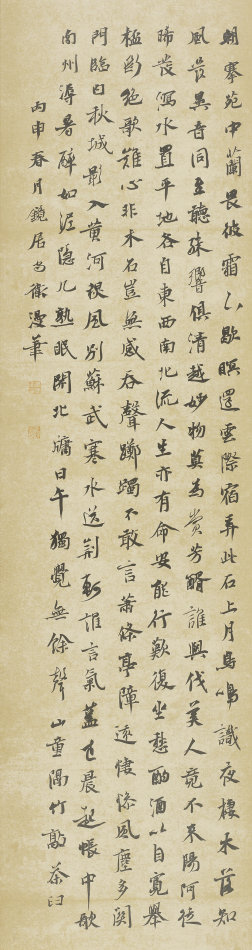 朝搴苑中蘭畏彼霜下歇瞑還雲際宿弄此石上月鳥鳴識夜棲木落知
風發異音同至聽殊響俱清越妙物莫為賞芳醑誰與伐美人竟不來陽阿徒
晞髮瀉水置平地各自東西南北流人生亦有命安能行歎復坐愁酌酒以自寬舉
杯斷絕歌難心非木石豈無感吞聲躑躅不敢言蕭條亭障遠悽慘風塵多關
門臨白狄城影入黃河風別蘇武寒水送荊軻誰言氣蓋世晨起帳中歌
南州溽暑醉如隱几熟眠開北牖日午獨覺無餘聲山童隔竹敲茶臼
丙申春月鏡居漫筆